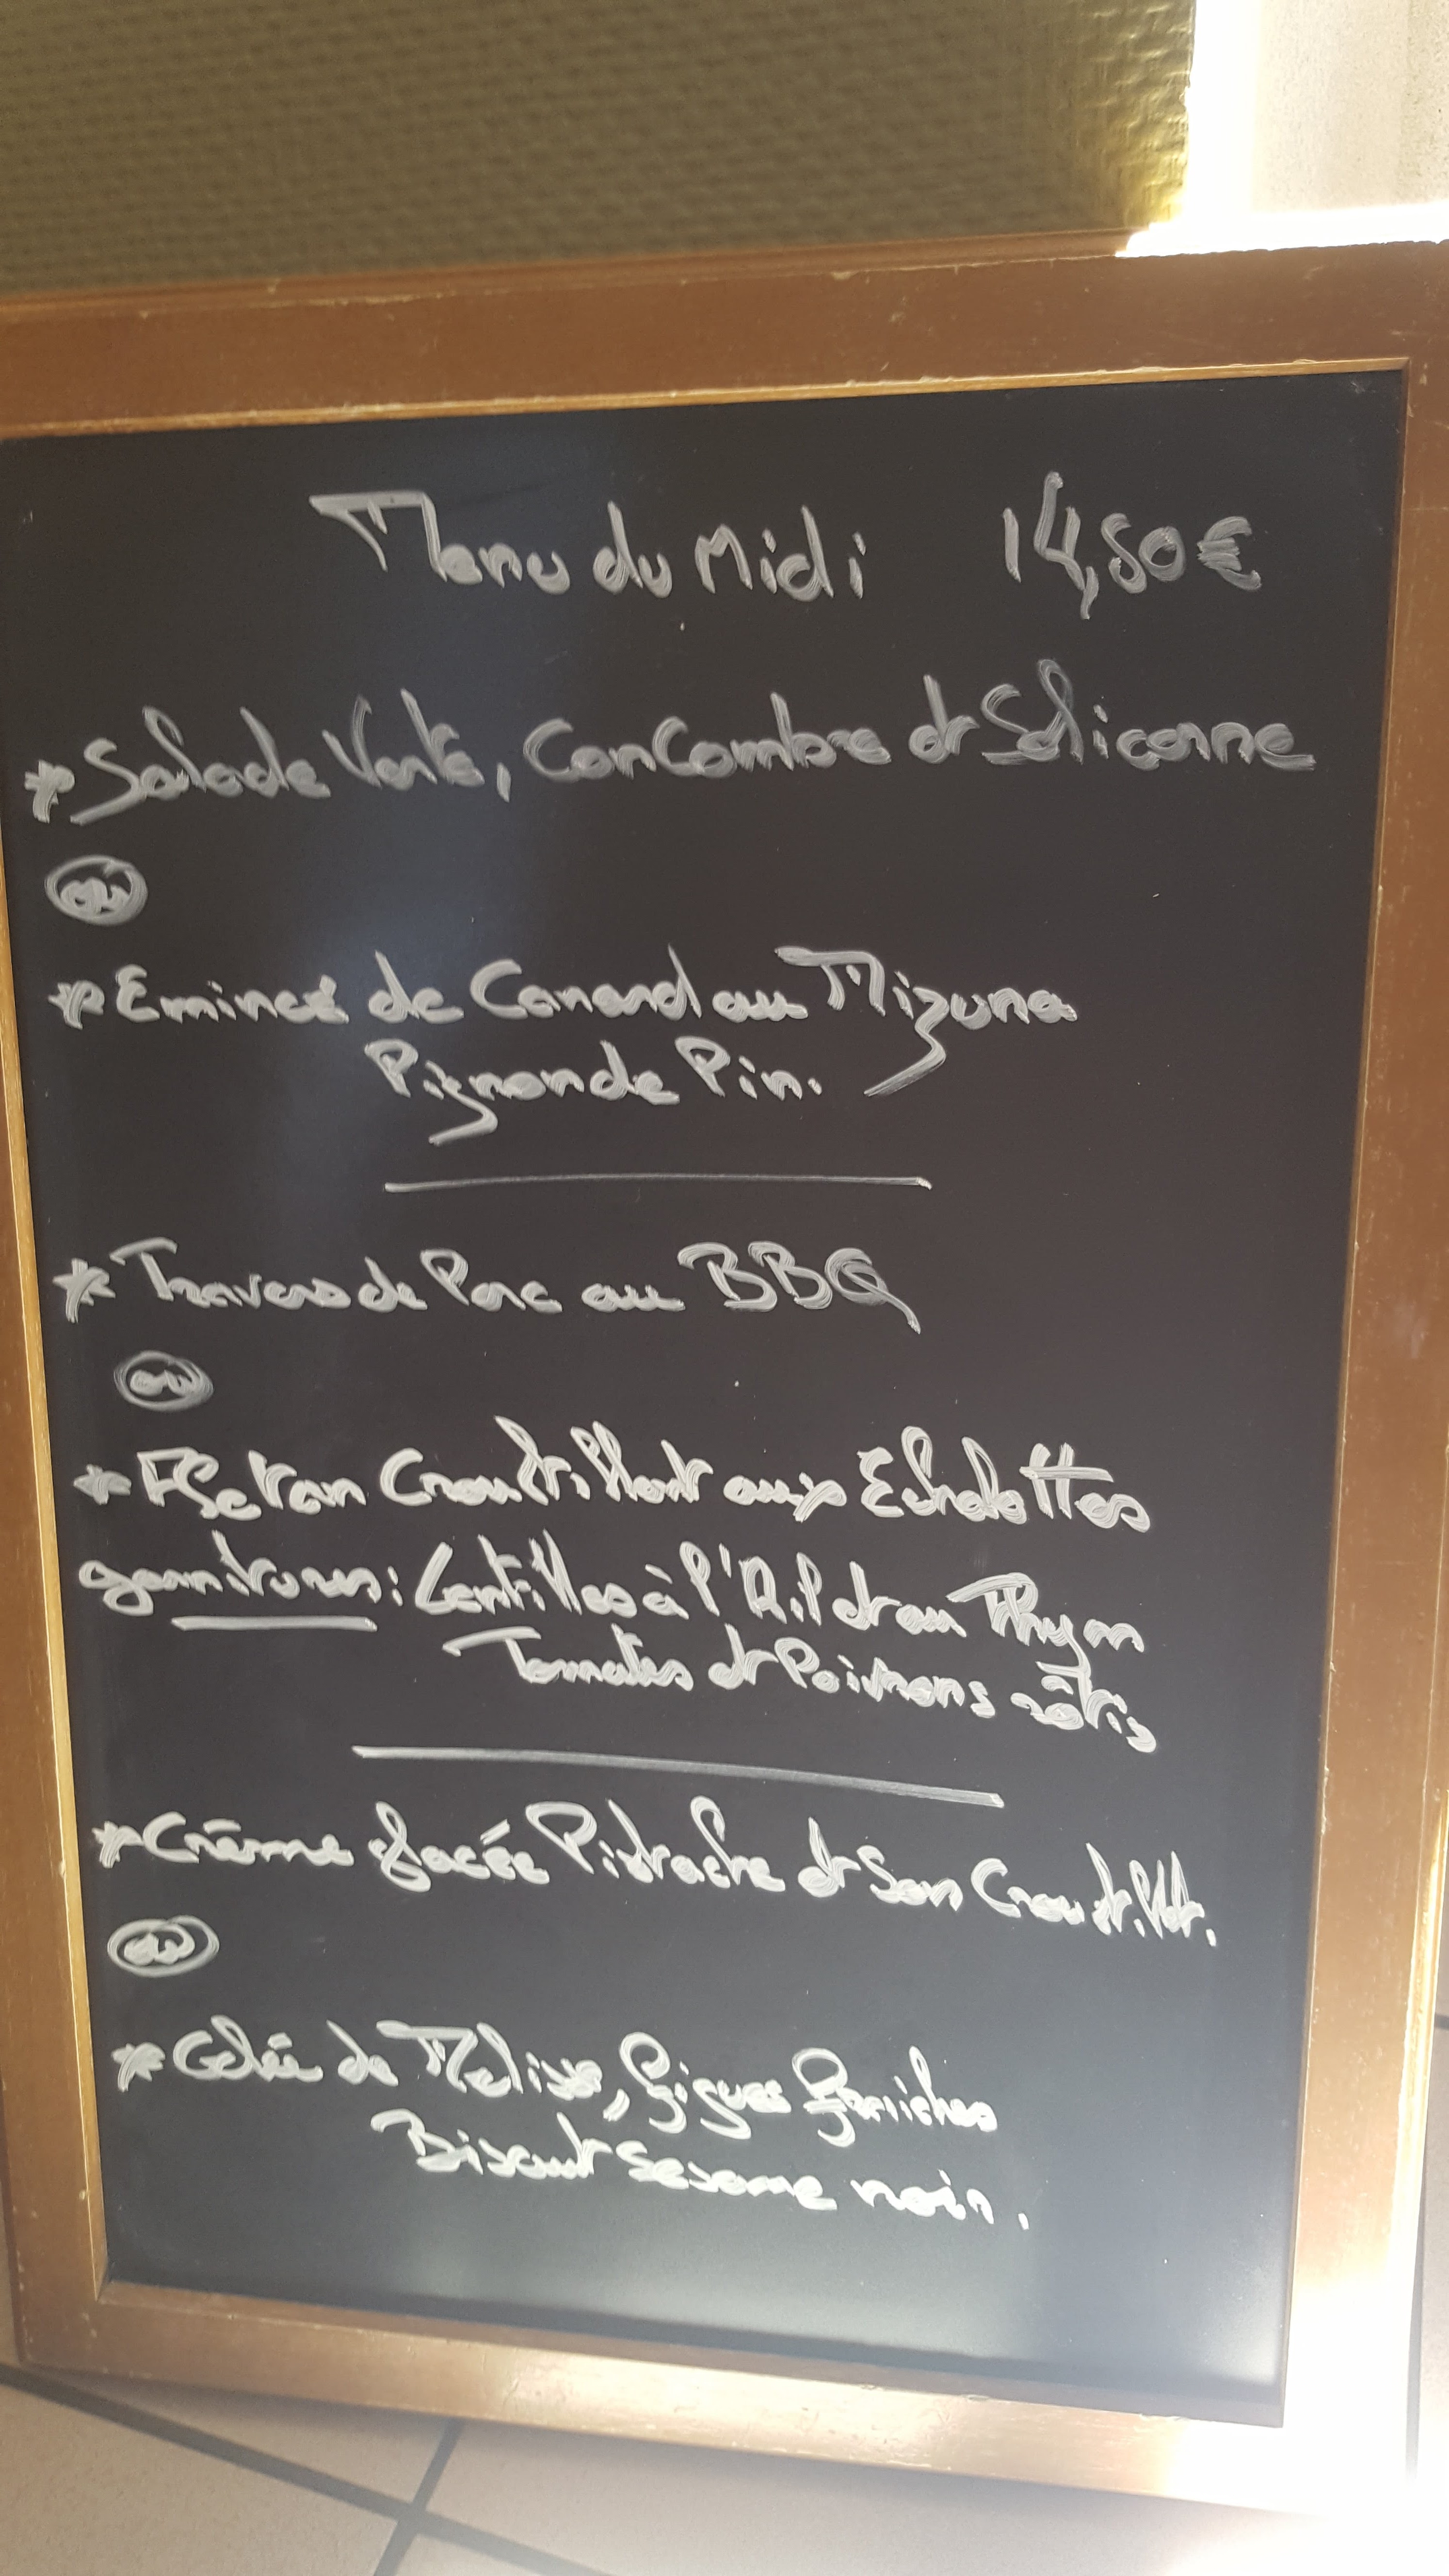 Menu du Midi 14,50€
* Salade Verte, Concombre et Salicorne
ou
* Emincé de Canard au Mizuna
Pignon de Pin.
* Travers de Porc au BBQ
ou
* Fletan Croustillant aux Echalottes
garnitures: Lentilles à l'Ail et au Thym
Tomates et Poivrons rôtis
* Crème glacée Pistache et Son Croustillt.
ou
* Gelée de Melisse, figues fraiches
Biscuit Sesame noir.